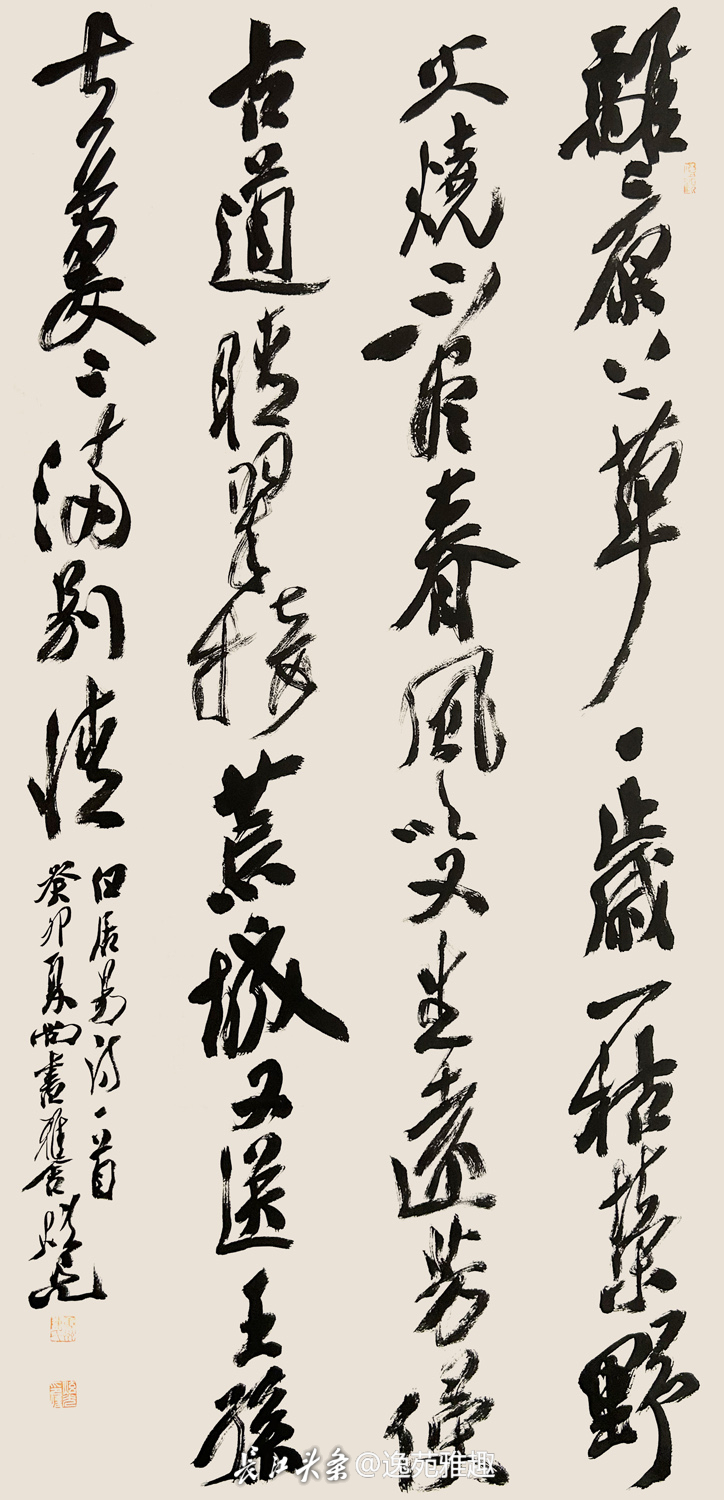 離〻原上草一歲一枯榮野
火燒不盡春風吹又生遠芳侵
古道晴翠接荒城又送王孫
去萋〻滿別情
白居易詩一首
癸卯夏尚書雅舍
長江头条@逸苑雅趣